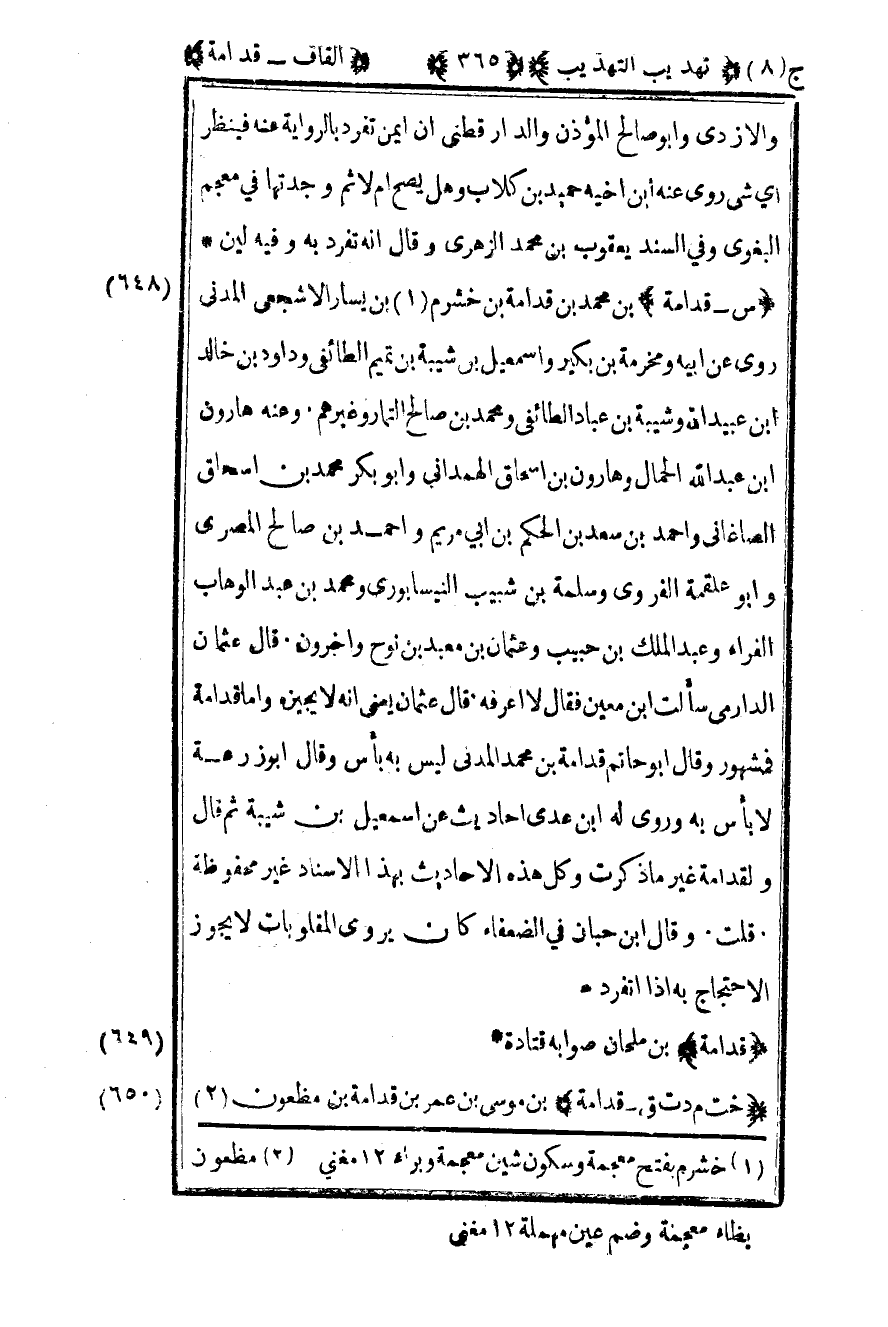 ج (٨) ﴿ تهذيب التهذيب ﴾ ﴿ ٣٦٥ ﴾ ﴿ القاف ـ قدامة ﴾
والازدى وابوصالح المؤذن والدارقطنى ان ايمن تفرد بالرواية عنه فينظر
اي شى روى عنه أبن اخيه حميد بن كلاب وهل يصح ام لا ثم وجدتها في معجم
البغوى وفي السند يعقوب بن محمد الزهرى وقال انه تفرد به وفيه لين *
﴿ س ـ قدامة ﴾ بن محمد بن قدامة بن خشرم (١) بن يسار الاشجعى المدنى (٦٤٨)
روى عن ابيه ومخرمة بن بكير واسمعيل بن شيبة بن تميم الطائفى وداود بن خالد
ابن عبيدالله وشيبة بن عباد الطائفى ومحمد بن صالح التمار وغيرهم · وعنه هارون
ابن عبدالله الحمال وهارون بن اسحاق الهمداني وابو بكر محمد بن اسحاق
الصاغانى واحمد بن سعد بن الحكم بن ابي مريم واحمد بن صالح المصرى
وابو علقمة الفروى وسلمة بن شبيب النيسابورى ومحمد بن عبد الوهاب
الفراء وعبد الملك بن حبيب وعثمان بن معبد بن نوح واخرون · قال عثمان
الدارمى سألت ابن معين فقال لا اعرفه · قال عثمان يعنى انه لا يجيزه واما قدامة
فمشهور وقال ابوحاتم قدامة بن محمد المدنى ليس به بأس وقال ابوزرعة
لا بأس به وروى له ابن عدى احاديث عن اسمعيل بن شيبة ثم قال
ولقدامة غير ما ذكرت وكل هذه الاحاديث بهذا الاسناد غير محفوظة
· قلت · وقال ابن حبان في الضعفاء كان يروى المقلوبات لا يجوز
الاحتجاج به اذا انفرد *
﴿ قدامة ﴾ بن ملحان صوابه قتادة * (٦٤٩)
﴿ خت م د ت ق ـ قدامة ﴾ بن موسى بن عمر بن قدامة بن مظعون (٢) (٦٥٠)
(١) خشرم بفتح معجمة وسكون شين معجمة وبراء ١٢ مغني (٢) مظعون
بظاء معجمة وضم عين مهملة ١٢ مغنى